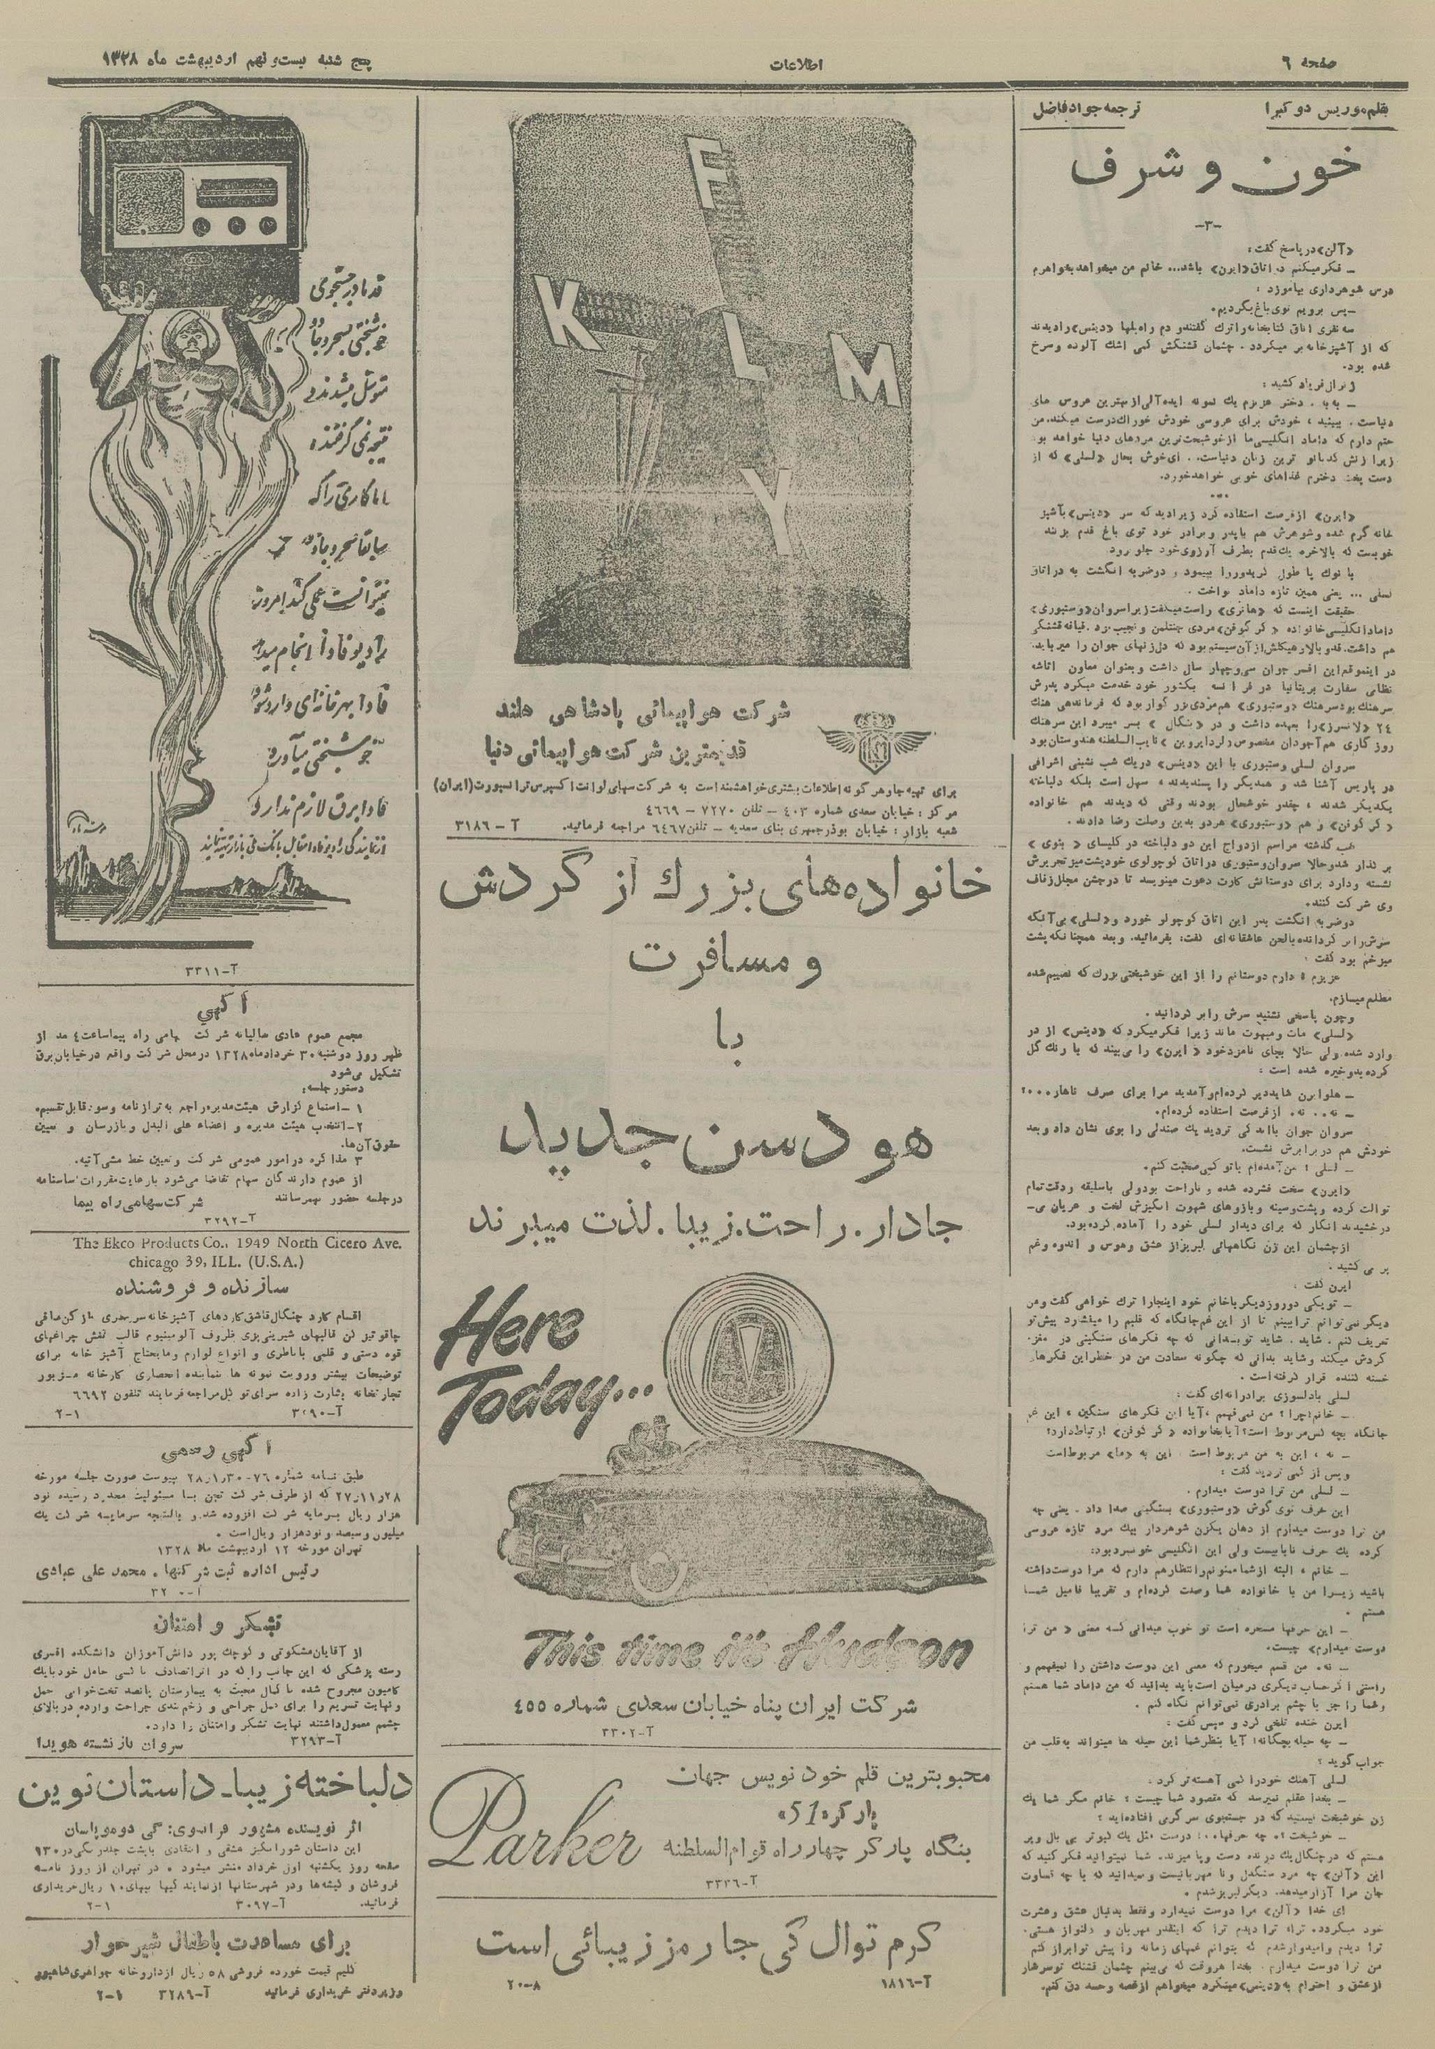 صفحه ۶
اطلاعات
پنج شنبه بیست و نهم اردیبهشت ماه ۱۳۲۸
بقلم موریس دو کبرا
ترجمه جواد فاضل
خون و شرف
-۳-
«آلن» در پاسخ گفت :
ـ فکر میکنم در اتاق «ایرن» باشد... خانم من میخواهد بخواهرم
درس شوهرداری بیاموزد :
ـ پس برویم توی باغ بگردیم.
سه نفری اتاق کتابخانه را ترک گفتند و دم راه پلها «دینس» را دیدند
که از آشپزخانه بر میگردد . چشمان قشنگش کمی اشک آلوده و سرخ
شده بود.
ژنرال فریاد کشید :
ـ به به . دختر عزیزم یک نمونه ایده آلی از بهترین عروس های
دنیاست . ببینید ، خودش برای عروسی خودش خوراک درست میکند. من
حتم دارم که داماد انگلیسی ما از خوشبخت ترین مردهای دنیا خواهد بود
زیرا زنش کدبانو ترین زنان دنیاست. . ای خوش بحال «لسلی» که از
دست پخت دخترم غذاهای خوبی خواهد خورد.
***
«ایرن» از فرصت استفاده کرد زیرا دید که سر «دینس» بآشپز
خانه گرم شده و شوهرش هم با پدر و برادر خود توی باغ قدم میزنند
خوبست که بالاخره یک قدم بطرف آرزوی خود جلو رود
با نوک پا طول کریدور را پیمود و دو ضربه انگشت به در اتاق
لسلی ... یعنی همین تازه داماد نواخت .
حقیقت اینست که «هانری» راست میگفت زیرا سروان «وستبوری»
داماد انگلیسی خانواده «کرگوفن» مردی جنتلمن و نجیب بود. قیافه قشنگی
هم داشت. قد و بالا و هیکلش از آن سیستم بود که دل زنهای جوان را میرباید.
در اینموقع این افسر جوان سی و چهار سال داشت و بعنوان معاون اتاشه
نظامی سفارت بریتانیا در فرانسه بکشور خود خدمت میکرد پدرش
سرهنگ بود سرهنگ «وستبوری» هم مردی بزرگوار بود که فرماندهی هنگ
۲۴ «لانسرز» را بعهده داشت و در «بنگال» بسر میبرد این سرهنگ
روزگاری هم آجودان مخصوص «لرد ایروین» نایب السلطنه هندوستان بود
سروان لسلی وستبوری با این «دینس» در یک شب نشینی اشرافی
در پاریس آشنا شد و همدیگر را پسندیدند ، سهل است بلکه دلباخته
یکدیگر شدند ، چقدر خوشحال بودند وقتی که دیدند هم خانواده
«کرگوفن» و هم «وستبوری» هر دو بدین وصلت رضا دادند .
شب گذشته مراسم ازدواج این دو دلباخته در کلیسای « بنوی »
بر گذار شد و حالا سروان وستبوری در اتاق کوچولوی خود پشت میز تحریرش
نشسته و دارد برای دوستانش کارت دعوت مینویسد تا در جشن مجلل زفاف
وی شرکت کنند.
دو ضربه انگشت بدر این اتاق کوچولو خورد و «لسلی» بی آنکه
سرش را بر گرداند با لحن عاشقانه ای گفت: بفرمائید. و بعد همچنانکه پشت
میز خم بود گفت :
عزیزم ! دارم دوستانم را از این خوشبختی بزرگ که نصیبم شده
مطلع میسازم.
و چون پاسخی نشنید سرش را بر گردانید .
«لسلی» مات و مبهوت ماند زیرا فکر میکرد که «دینس» از در
وارد شده ولی حالا بجای نامزد خود « ایرن» را می بیند که با رنگ گل
کرده بدو خیره شده است :
ـ هلو ایرن شاید دیر کرده ام و آمدید مرا برای صرف ناهار ۰۰۰۰؟
ـ نه . . نه . از فرصت استفاده کرده ام.
سروان جوان با اندکی تردید یک صندلی را بوی نشان داد و بعد
خودش هم در برابرش نشست.
ـ لسلی ! من آمده ام با تو کمی صحبت کنم.
«ایرن» سخت فشرده شده و ناراحت بود ولی با سلیقه و دقت تمام
توالت کرده و پشت و سینه و بازوهای شهوت انگیزش لخت و عریان می-
درخشیدند انگار که برای دیدار لسلی خود را آماده کرده بود.
از چشمان این زن نگاههائی لبریز از عشق و هوس و اندوه و غم
بر می کشید .
ایرن گفت :
ـ تو یکی دو روز دیگر با خانم خود اینجا را ترک خواهی گفت و من
دیگر نمی توانم ترا ببینم تا از این غم جانگاه که قلبم را میفشارد پیش تو
تعریف کنم . شاید . شاید تو بدانی که چه فکرهای سنگینی در مغزم
گردش میکند و شاید بدانی که چگونه سعادت من در خطر این فکرهای
خسته کننده قرار گرفته است .
لسلی با دلسوزی برادرانه ای گفت :
ـ خانم ! چرا ؟ من نمی فهمم ، آیا این فکرهای سنگین ، این غم
جانگاه بچه کس مربوط است؟ آیا بخانواده « کرگوفن» ارتباط دارد؟
ـ نه ، این به من مربوط است . این به «ما» مربوط است
و پس از کمی تردید گفت :
ـ لسلی من ترا دوست میدارم .
این حرف توی گوش «وستبوری» بسنگینی صدا داد . یعنی چه
من ترا دوست میدارم از دهان یک زن شوهردار بیک مرد تازه عروسی
کرده یک حرف نابابیست ولی این انگلیسی خونسرد بود:
ـ خانم ، البته از شما ممنونم و انتظار هم دارم که مرا دوست داشته
باشید زیرا من با خانواده شما وصلت کرده ام و تقریبا فامیل شما
هستم .
ـ این حرفها مسخره است تو خوب میدانی که معنی « من ترا
دوست میدارم» چیست.
ـ نه. من قسم میخورم که معنی این دوست داشتن را نمیفهمم و
راستی اگر حساب دیگری در میان است باید بدانید که من داماد شما هستم
و شما را جز با چشم برادری نمی توانم نگاه کنم .
ایرن خنده تلخی کرد و سپس گفت :
ـ چه حیله بچگانه! آیا بنظر شما این حیله ها میتواند به قلب من
جواب گوید ؟
لسلی آهنگ خود را کمی آهسته تر کرد :
ـ بخدا عقلم نمیرسد که مقصود شما چیست ؟ خانم مگر شما یک
زن خوشبخت نیستید که در جستجوی سرگرمی افتاده اید ؟
ـ خوشبخت؟ ، چه حرفها ۰۰! درست مثل یک کبوتر بی بال و پر
هستم که در چنگال یک درنده دست و پا میزند. شما نمیتوانید فکر کنید که
این «آلن» چه مرد سنگدل و نا مهربانیست و نمیدانید که با چه قساوت
جان مرا آزار میدهد. دیگر لبریز شدم .
ای خدا «آلن» مرا دوست نمیدارد و فقط بدنبال عشق و عشرت
خود میگردد. ترا، ترا دیدم ترا که اینقدر مهربان و دلنواز هستی.
ترا دیدم و امیدوار شدم که بتوانم غمهای زمانه را پیش تو ابراز کنم
من ترا دوست میدارم . بخدا هر وقت که می بینم چشمان قشنگ تو سرشار
از عشق و احترام به «دینس» مینگرد میخواهم از غصه و حسد دق کنم.
F
K L M
Y
شرکت هواپیمائی پادشاهی هلند
قدیمترین شرکت هواپیمائی دنیا
KLM
برای تهیه جا و هر گونه اطلاعات بیشتری خواهشمند است به شرکت سهامی لوانت اکسپرس ترانسپورت (ایران)
مرکز : خیابان سعدی شماره ۴۰۳ - تلفن ۷۲۷۰ - ۴۶۶۹
شعبه بازار : خیابان بوذرجمهری بنای سعدیه - تلفن ۶۴۶۷ مراجعه فرمائید.
آ - ۳۱۸۶
خانواده های بزرگ از گردش
و مسافرت
با
هودسن جدید
جادار. راحت. زیبا. لذت میبرند
Here
Today...
This time it's Hudson
شرکت ایران پناه خیابان سعدی شماره ۴۵۵
آ-۳۳۰۲
محبوبترین قلم خود نویس جهان
پارکر «51»
بنگاه پارکر چهارراه قوام السلطنه
Parker
آ-۳۳۲۶
کرم توال کی جا رمز زیبائی است
آ-۱۸۱۶
۲۰-۸
قدما در جستجوی
خوشبختی بسحر و جادو
متوسل میشدند و
نتیجه نمی گرفتند
اما کاری را که
سابقا سحر و جادو هم
نمیتوانست عملی کند امروز
رادیو فادا انجام میدهد
فادا بهر خانه ای وارد شود
خوشبختی میآورد
فادا برق لازم ندارد
از نمایندگی رادیو فادا مقابل بانک ملی بازار تهیه نمایند
آ-۳۳۱۱
آگهی
مجمع عموم عادی سالیانه شرکت سهامی راه پیما ساعت ۴ بعد از
ظهر روز دوشنبه ۳۰ خرداد ماه ۱۳۲۸ در محل شرکت واقع در خیابان برق
تشکیل می شود
دستور جلسه:
۱ - استماع گزارش هیئت مدیره راجع به ترازنامه و سود قابل تقسیم.
۲ - انتخاب هیئت مدیره و اعضاء علی البدل و بازرسان و تعیین
حقوق آن ها.
۳ مذاکره در امور عمومی شرکت و تعیین خط مشی آتیه.
از عموم دارندگان سهام تقاضا می شود با رعایت مقررات اساسنامه
در جلسه حضور بهمرسانند
شرکت سهامی راه پیما
آ-۳۲۹۲
The Ekco Products Co., 1949 North Cicero Ave.
chicago 39, ILL. (U.S.A.)
سازنده و فروشنده
اقسام کارد چنگال قاشق کاردهای آشپزخانه سر بطری
چاقو تیز کن قالبهای شیرینی پزی ظروف آلومینیوم قالب کفش چراغهای
قوه دستی و قلمی با باطری و انواع لوازم و مایحتاج آشپز خانه برای
توضیحات بیشتر و رویت نمونه ها بنماینده انحصاری کارخانه مزبور
تجارتخانه بشارت زاده سرای مراجعه فرمایند تلفون ۶۶۹۲
آ-۳۲۹۰
۲-۱
آگهی رسمی
طبق نامه شماره ۷۶-۲۸ر۱ر۳۰ پیوست صورت جلسه مورخه
۲۷ر۱۱ر۲۸ که از طرف شرکت تجن با مسئولیت محدود رسیده نود
هزار ریال بسرمایه شرکت افزوده شد و بالنتیجه سرمایه شرکت یک
میلیون و سیصد و نود هزار ریال است .
تهران مورخه ۱۲ اردیبهشت ماه ۱۳۲۸
رئیس اداره ثبت شرکتها . محمد علی عبادی
تشکر و امتنان
از آقایان مشکوتی و کوچک پور دانش آموزان دانشکده افسری
رسته پزشکی که این جانب را که در اثر تصادف تاکسی حامل خود با یک
کامیون مجروح شده با کمال محبت به بیمارستان پانصد تختخوابی حمل
و نهایت تسریع را برای عمل جراحی و زخم بندی جراحت وارده در بالای
چشم معمول داشتند نهایت تشکر و امتنان را دارد.
آ-۳۲۹۳
سروان بازنشسته هویدا
دلباخته زیبا ـ داستان نوین
اثر نویسنده مشهور فرانسوی: گی دوموپاسان
این داستان شورانگیز عشقی و انتقادی با پشت جلد رنگی در ۱۳۰
صفحه روز یکشنبه اول خرداد منتشر میشود . در تهران از روزنامه
فروشان و کیشه ها و در شهرستانها از نمایندگیها ببهای ۱۰ ریال خریداری
فرمائید.
آ-۳۰۹۷
۲-۱
برای مساعدت باطفال شیر خوار
کلیم قیمت خورده فروشی ۵۸ ریال از داروخانه جواهری شاهپور
وزیر دفتر خریداری فرمائید
آ-۳۲۸۹
۲-۱